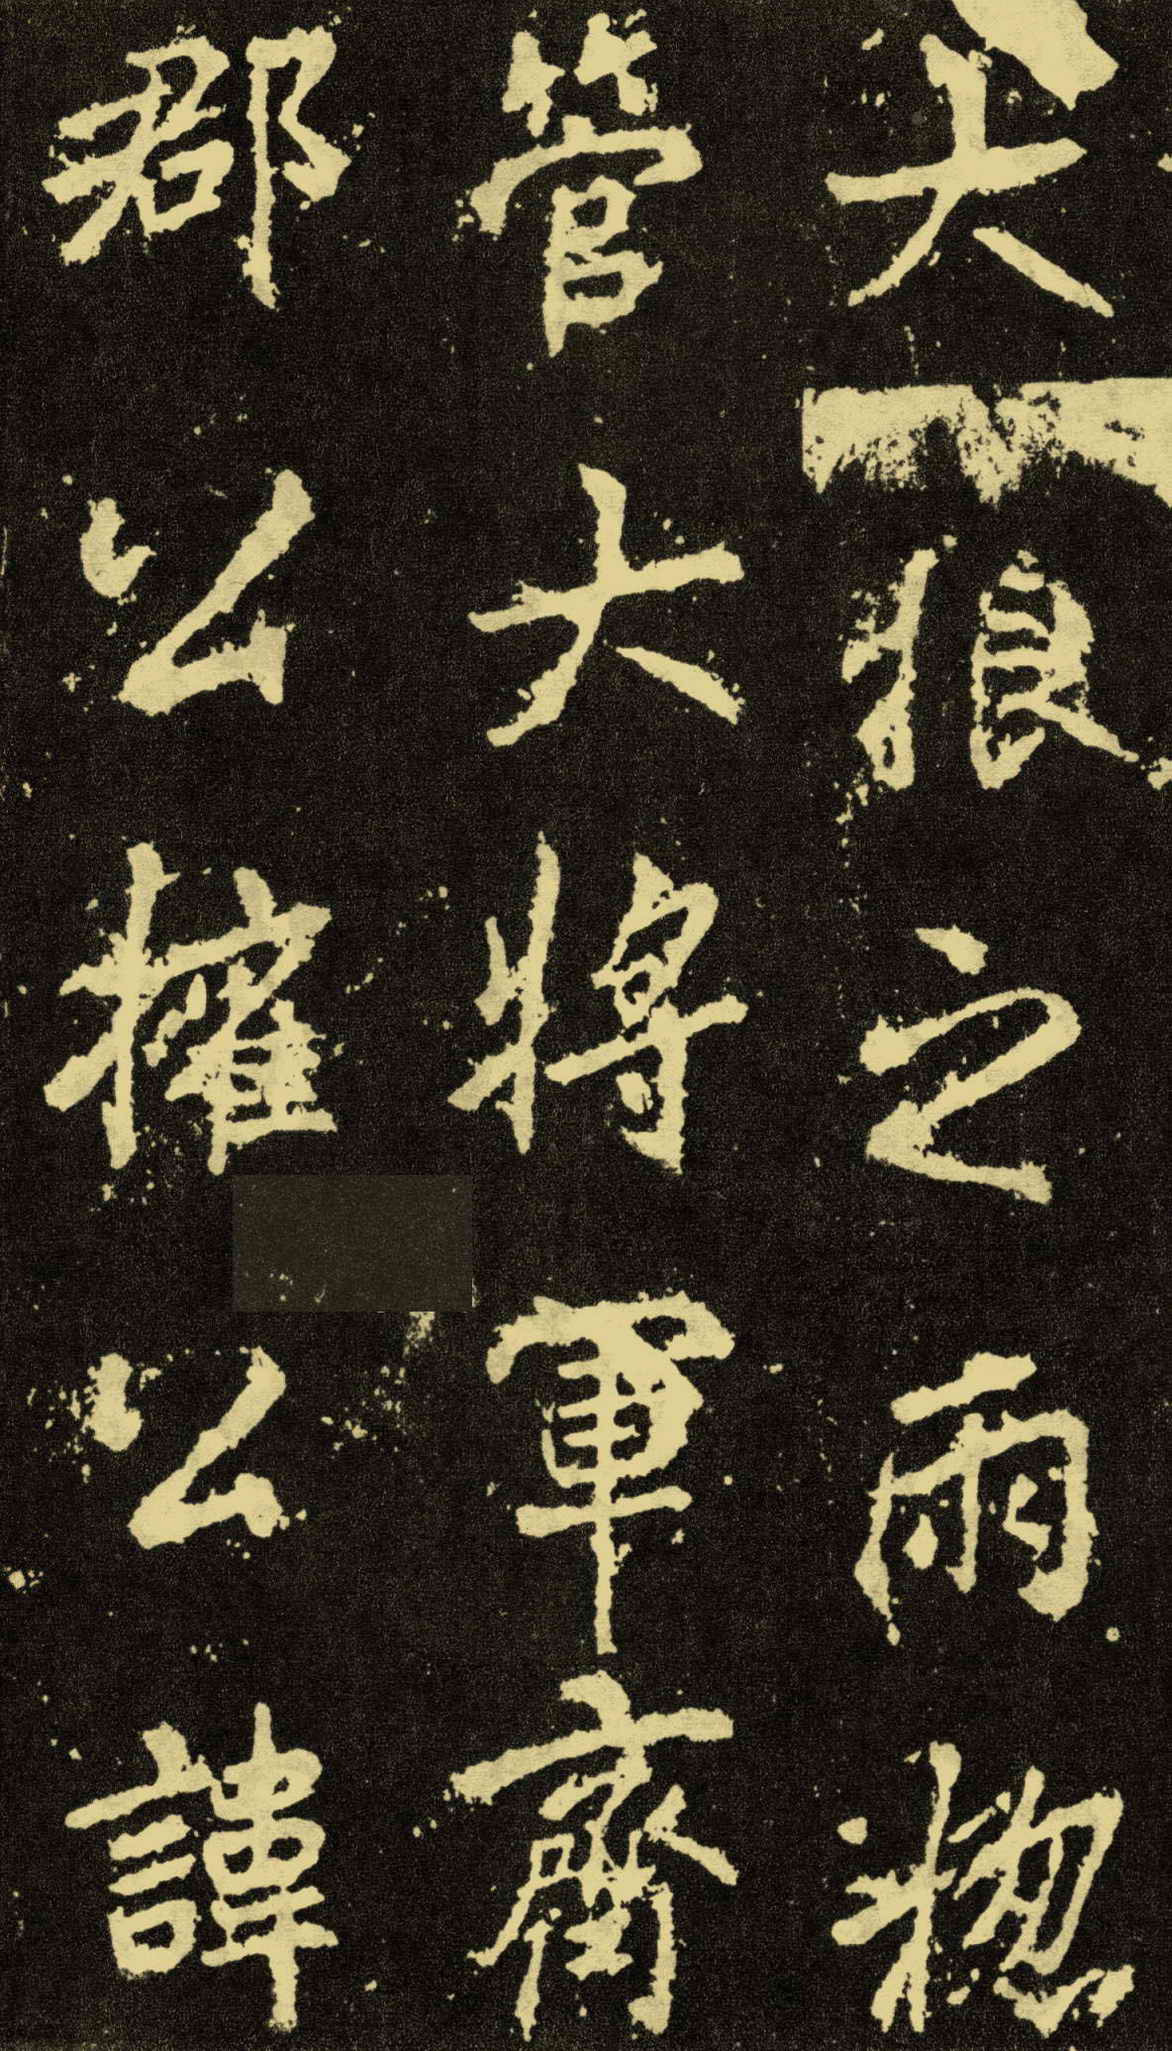 大根之雨惣
管大將軍齊
郡公權公諱